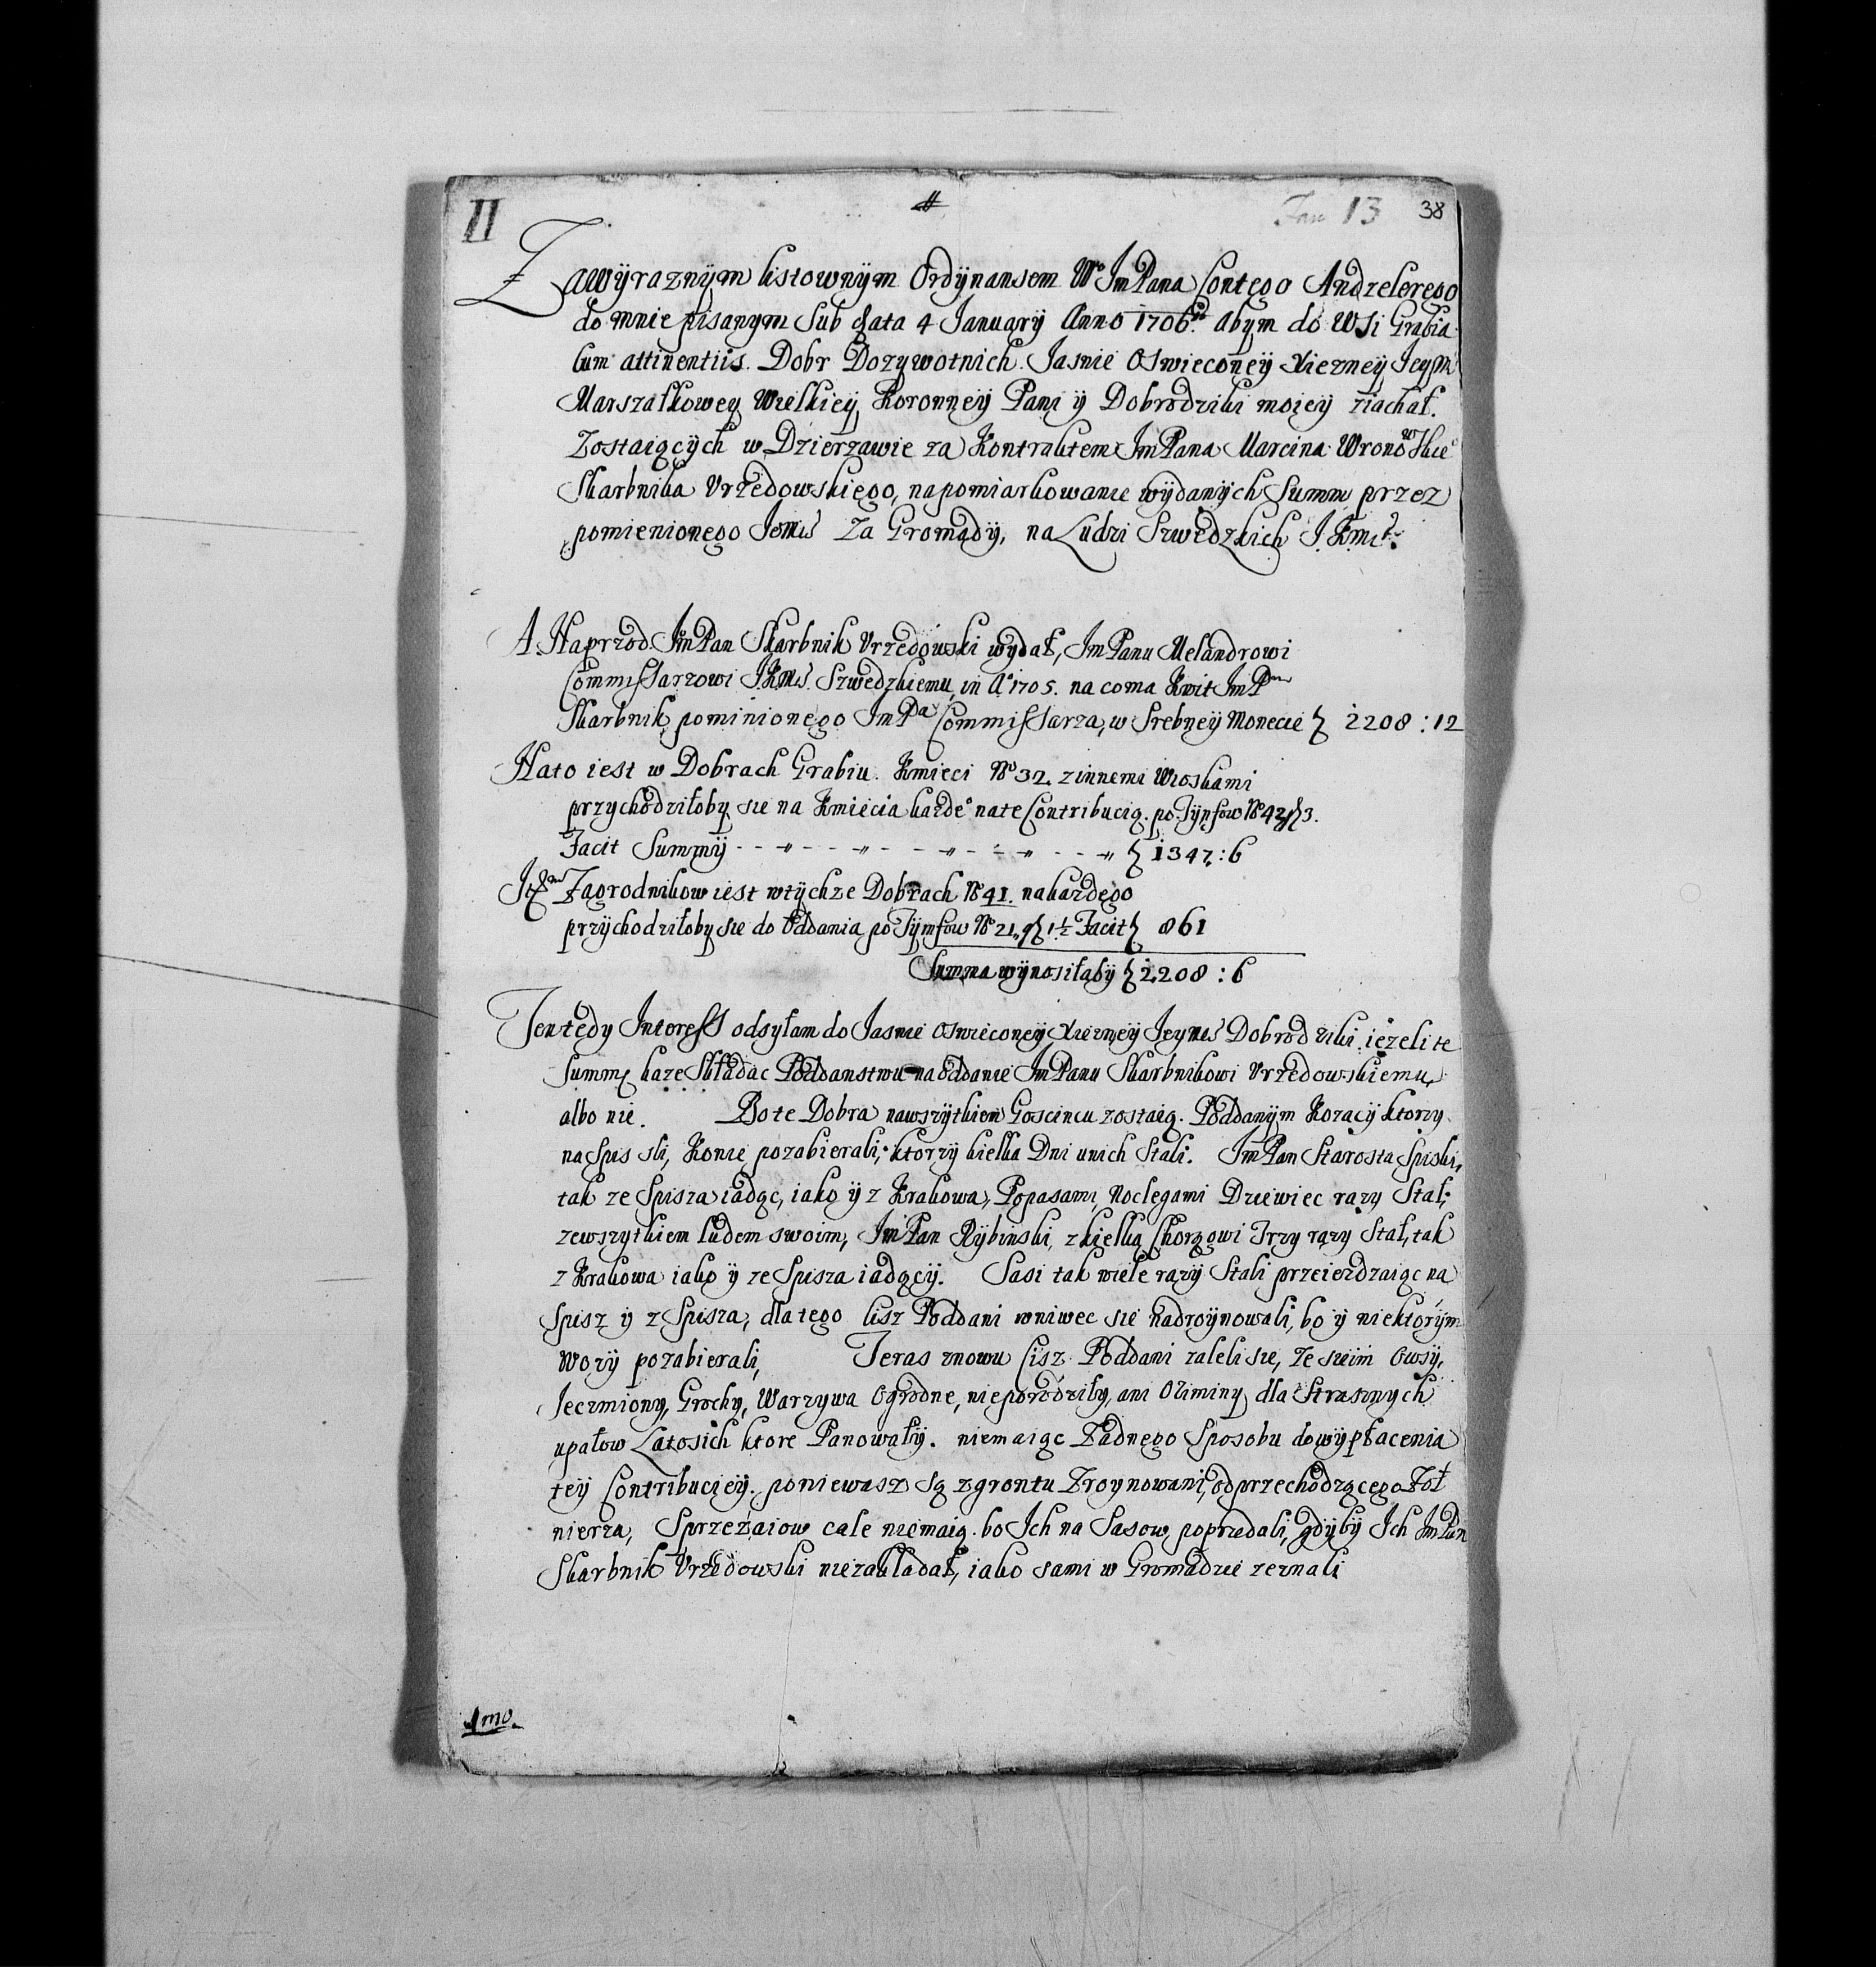 II
Jan 13 38
Zawÿraznÿm listownÿm Ordÿnansem Wo ImPana Contego Andzelerego
do mnie pisanym Sub data 4 Januarÿ Anno 1706 abym do Wsi Grabia
Cum attinentiis. Dobr Dozywotnich Jasnie Oswieconeÿ Xiezneÿ Jeym
Marszałkowey Wielkieÿ Koronneÿ Pani ÿ Dobrodziki moieÿ ziachał.
Zostaiącÿch w Dzierzawie za Kontraktem ImPana Marcina Wronowskie
Skarbnika Vrzędowskiego, napomiarkowanie wÿdanÿch Summ przez
pomienionego Jemś Za Gromady, na Ludzi Szwedzkich J. Kmi
A. Naprzod ImPan Skarbnik Vrzędowski wydał, ImPanu Melandrowi
Commissarzowi JKMś. Szwedzkiemu in Ao 1705. na coma Kwit ImPan
Skarbnik pominionego ImPa Commissarza, w Srebneÿ Monecie } 2208 : 12
Nato iest w Dobrach Grabiu. Kmieci No 32. zinnemi Wioskami
przychodziłoby sie na Kmiecia każdeo nate Contribucią. po Tÿnfow No 42 } 3.
Facit Summÿ - - - - - - } 1347 : 6
Itm Zagrodnikow iest wtÿchze Dobrach No 41. nakazdego
przÿchodziłoby sie do oddania po Tÿmfow No 21, 1½ Facit } 861
Summa wÿnosiłabÿ } 2208 : 6
Tentedy Interess odsyłam do Jasnie Oswieconeÿ Xiezneÿ Jeymś Dobrodziki. iezeli te
Summę kaze Składac Poddanstwu na oddanie ImPanu Skarbnikowi Vrzędowskiemu,
albo nie. Bo te Dobra nawszÿtkiem Goscincu zostaią. Poddanÿm Kozacÿ ktorzy
na Spis sli, Konie pozabierali, ktorzÿ kielka Dni unich Stali. ImPan Starosta Spiski,
tak ze Spisza iadąc, iako ÿ z Krakowa, Popasami, Noclegami Dziewiec razy Stał,
zewszytkiem ludem swoim, ImPan Rÿbinski, z kielką Chorągwi Trzy razy Stał, tak
z Krakowa iako ÿ ze Spisza iadącÿ. Sasi tak wiele razÿ Stali przeiezdzaiąc na
Spisz ÿ z Spisza, dlatego cisz Poddani wniwec sie nadroÿnowali, bo ÿ niektorÿm
Wozÿ pozabierali, Teras znowu cisz Poddani zaleli sie, ze sieim Owsÿ,
Jeczmiony, Grochy, Warzywa Ogrodne, nieporodziły, ani Oziminy dla Strasznych
upałow Latosich ktore Panowałÿ. niemaiąc Zadnego Sposobu dowÿpłacenia
teÿ Contribucieÿ. poniewasz są zgrontu Zroynowani, od przechodzącego Zoł
nierza, Sprzeżaiow cale niemaią. bo Ich na Sasow poprzedali, gdÿbÿ Ich ImPan
Skarbnik Vrzędowski niezakładał, iako sami w Gromadzie zeznali
1mo.